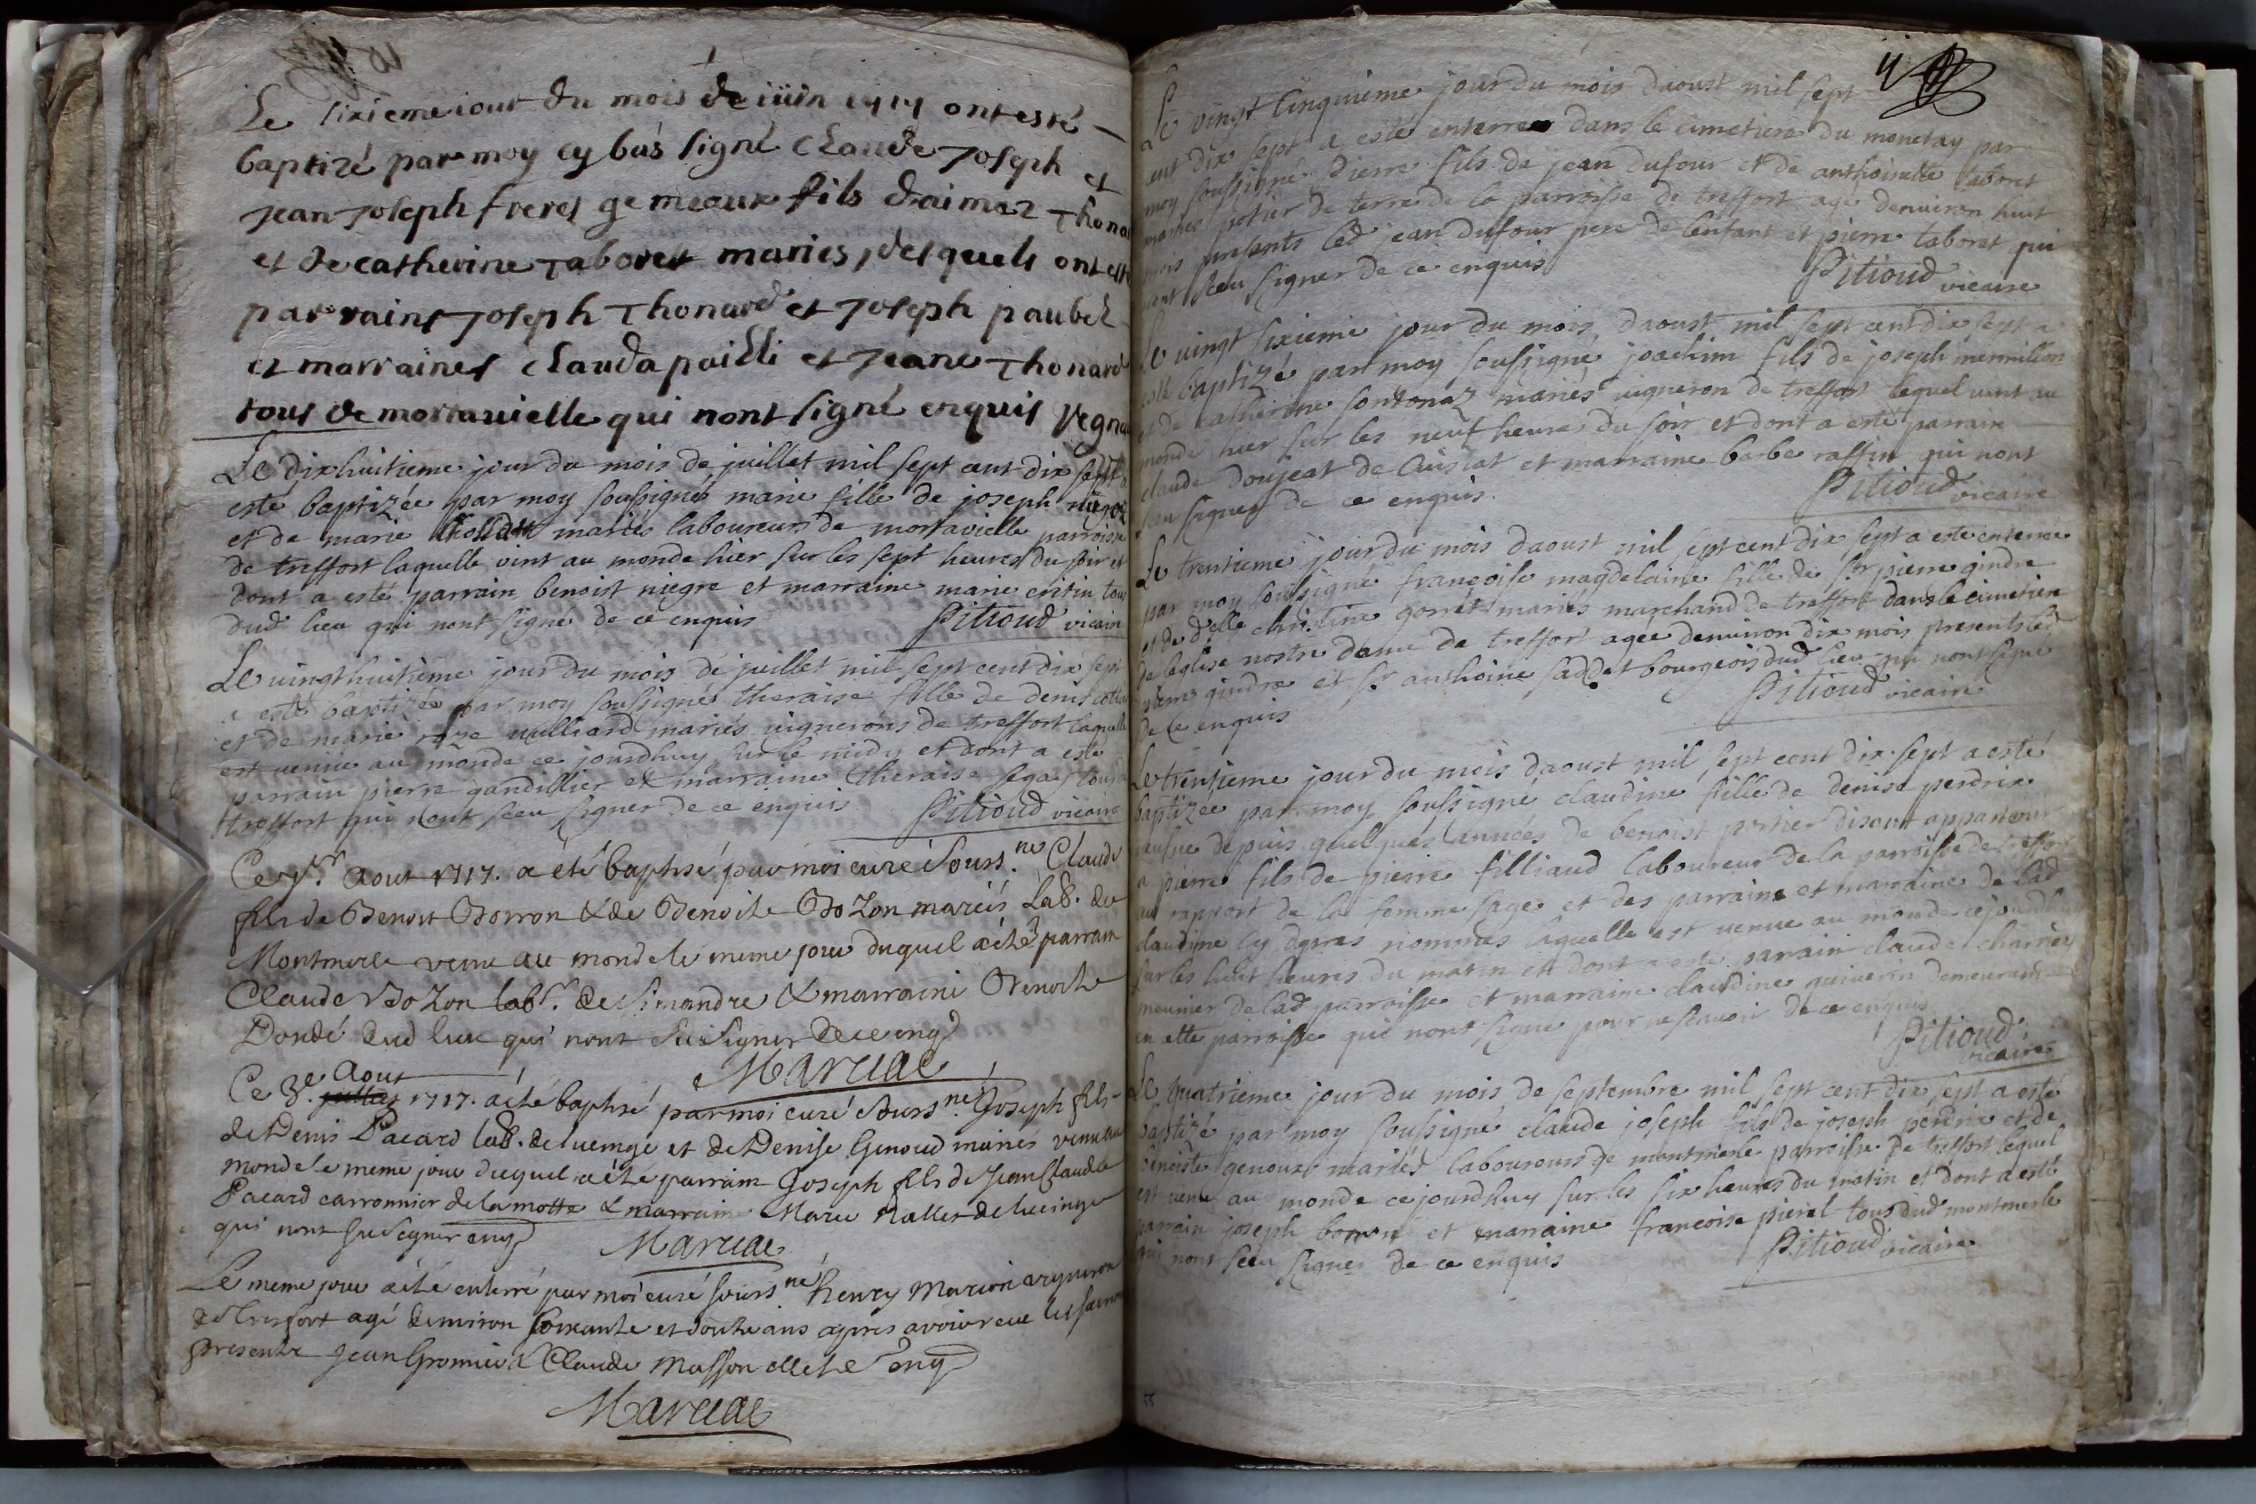 Le sixieme iour du mois de iüin 1717 ont esté
baptizé par moy cy bas signé Claude Joseph et
Jean Joseph freres gemeaux fils daimaz Thonar
et de catherine Taboret mariés, desquels ont esté
parrains Joseph Thonard et Joseph paubel
et marraines clauda pailli et Jeane Thonard
tous de mortavielle qui nont signé enquis
Le dixhuitieme jour du mois de juillet mil sept cent dix sept a
esté baptizée par moy soussigné marie fille de joseph
et de marie mariés laboureurs de mortavielle parroisse
de treffort laquelle vint au monde hier sur les sept heures du soir et
dont a esté parrain benoist niegre et marraine marie critin tous
dud lieu qui nont signé de ce enquis Pitioud vicaire
Le vingthuitième jour du mois de juillet mil sept cent dix sept
a esté baptizée par moy soussigné theraise fille de denis
et de marie roze vulliard mariés vignerons de treffort laquelle
est venue au monde ce jourdhuy sur le midy et dont a esté
parrain pierre gandillier et marraine theraise tous de
treffort qui nont sceu signer de ce enquis Pitioud vicaire
Ce Aout 1717. a été baptisé par moi curé souss.né Claude
fils de Benoit Borron & de Benoite Bozon mariés Lab. de
Montmerle venu au monde le meme jour duquel a été parrain
Claude Bozon labr. de Simandre & marraine Benoite
Dondé dud lieu qui nont su signer de ce enq
Marcial
Ce 8e Aout 1717. a été baptisé par moi curé souss.né Joseph fils
de Denis Pacard lab. de lucinge et de Denise Genoud mariés venu au
monde le meme jour duquel a été parrain Joseph fils de Jean Claude
Pacard carronnier de la motte & marraine Marie Nallet de lucinge
qui nont su signer enq
Marcial
Le meme jour a été enterré par moi curé souss.né henry Marion vigneron
de Treffort agé denviron soixante et douze ans apres avoir receu les sacrem
presents Jean Gromier & Claude Masson enq
Marcial
11
Le vingt cinquieme jour du mois daoust mil sept
cent dix sept a esté enterré dans le cimetiere du monetay par
moy soussigné pierre fils de jean dufour et de anthoinette taboret
mariés potier de terre de la parroisse de treffort agé denviron huit
mois presents led jean dufour pere de lenfant et pierre taboret qui
nont sceu signer de ce enquis Pitioud vicaire
Le vingt sixieme jour du mois daoust mil sept cent dix sept a
esté baptizé par moy soussigné joachim fils de joseph mermillion
et de catherine fontonaz mariés vigneron de treffort lequel vint au
monde hier sur les neuf heures du soir et dont a esté parrain
claude doujeat de Cuisiat et marraine barbe raffin qui nont
sceu signer de ce enquis Pitioud vicaire
Le trentieme jour du mois daoust mil sept cent dix sept a esté enterrée
par moy soussigné françoise magdelaine fille de sr pierre gindre
et de delle christine gorrat mariés marchand de treffort dans le cimetiere
de leglise nostre dame de treffort agée denviron dix mois presents led
pierre gindre et sr anthoine saddet bourgeois dud lieu qui nont signé
de ce enquis Pitioud vicaire
Le trentieme jour du mois daoust mil sept cent dix sept a esté
baptizée par moy soussigné claudine fille de denise perdrix
veufve depuis quelques années de benoist portier disant appartenir
a pierre fils de pierre filliaud laboureur de la parroisse de treffort
au rapport de la femme sage et des parrains et marraine de lad
claudine cy apres nommés laquelle est venue au monde ce jourdhuy
sur les huit heures du matin et dont a esté parrain claude charnay
meunier de lad parroisse et marraine claudine guiverin demeurant
en cette parroisse qui nont signé pour ne scavoir de ce enquis
Pitioud
vicaire
Le quatrieme jour du mois de septembre mil sept cent dix sept a esté
baptizé par moy soussigné claude joseph fils de joseph perdrix et de
benoiste genoux mariés laboureurs de montmerle parroisse de treffort lequel
est venu au monde ce jourdhuy sur les six heures du matin et dont a esté
parrain joseph borron et marraine françoise pierel tous dud montmerle
qui nont sceu signer de ce enquis Pitioud vicaire